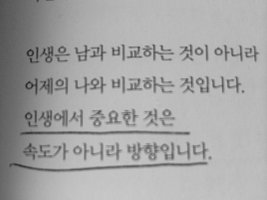 인생은 남과 비교하는 것이 아니라
어제의 나와 비교하는 것입니다.
인생에서 중요한 것은
속도가 아니라 방향입니다.